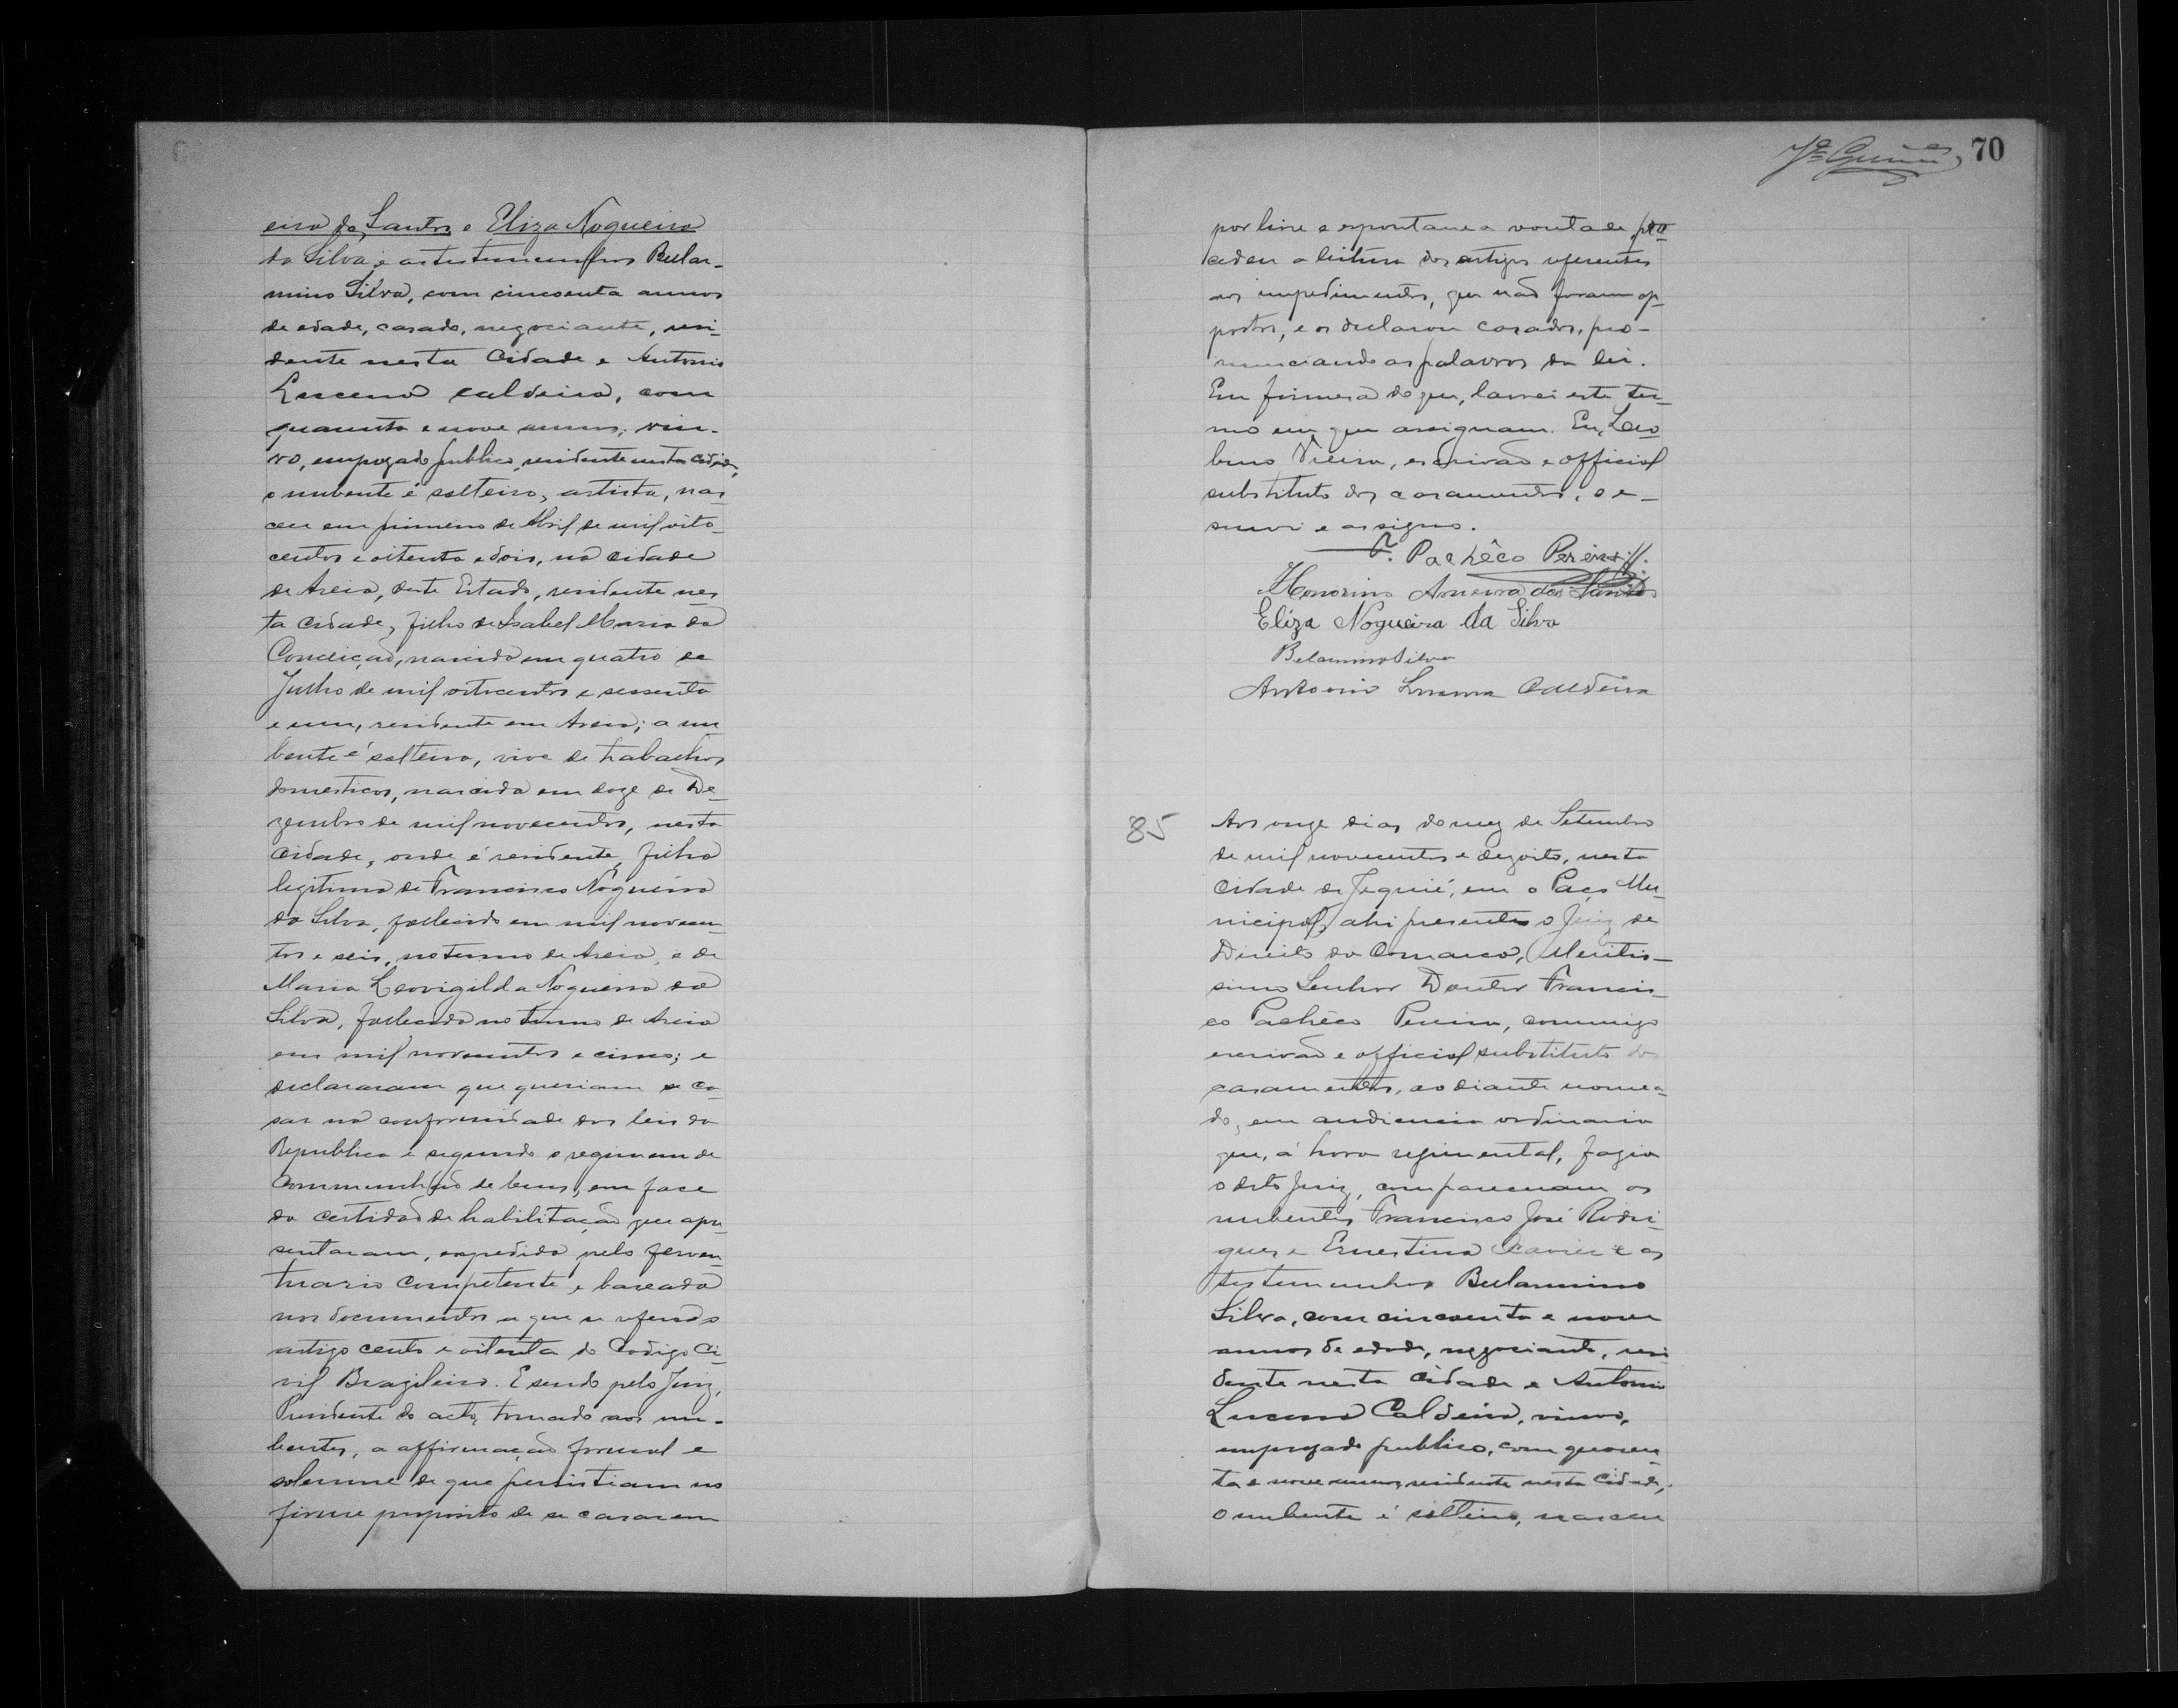 70
eira dos Santos e Eliza Nogueira
da Silva e as testemunhas Belar-
mino Silva, com cincoenta annos
de edade, casado, negociante, resi-
dente nesta Cidade e Antonio
Lucena Caldeira, com
quarenta e nove annos, viu-
vo, empregado publico, residente nesta cidade,
o nubente é solteiro, artista, nas
ceu em primeiro de Abril de mil oito-
centos e oitenta e dois, na cidade
de Areia, deste Estado, residente nes
ta Cidade, filho de Isabel Maria da
Conceição, nascida em quatro de
Julho de mil oitocentos e sessenta
e um, residente em Areia; a nu
bente é solteira, vive de trabalhos
domesticos, nascida em doze de De-
zembro de mil novecentos, nesta
Cidade, onde é residente, filha
legitima de Francisco Nogueira
da Silva, fallecido em mil novecen-
tos e seis, no termo de Areia, e de
Maria Leovigilda Nogueira da
Silva, fallecida no termo de Areia
em mil novecentos e cinco; e
declararam que queriam se ca-
sar na conformidade das leis da
Republica e segundo o regimem de
communhão de bens, em face
da certidão de habilitação que apre
sentaram, expedida pelo serven-
tuario competente, baseada
nos documentos a que se refere o
artigo cento e oitenta do Codigo Ci-
vil Brazileiro. E sendo pelo Juiz,
Presidente do acto, tomado aos nu-
bentes, a affirmação formal e
solemne de que persistiam no
firme proposito de se casarem
por livre e espontanea vontade, pro
cedeu a leitura dos artigos referentes
aos impedimentos, que não foram op-
postos, e os declarou casados, pro-
nunciando as palavras da lei.
Em firmeza do que, lavrei este ter-
mo em que assignam. Eu, Leo
bino Vieira, escrivão e official
substituto dos casamentos, o e-
screvi e assigno.
F. Pachêco Pereira
Honorino Arneira dos Santos
Eliza Nogueira da Silva
Belarmino Silva
Antonio Lucena Caldeira
85
Aos onze dias do mez de Setembro
de mil novecentos e dezoito, nesta
cidade de Jequié, em o Paço Mu-
nicipal, ahi presentes o Juiz de
Direito da Comarca, Meritis-
simo Senhor Doutor Francis-
co Pachêco Pereira, commigo
escrivão e official substituto dos
casamentos, ao diante nomea-
do, em audiencia ordinaria
que, á hora regimental, fazia
o dito Juiz, compareceram os
nubentes Francisco José Rodri-
gues e Ernestina Xavier e as
testemunhas Belarmino
Silva, com cincoenta e nove
annos de edade, negociante, resi
dente nesta cidade e Antonio
Lucena Caldeira, viuvo,
empregado publico, com quaren-
ta e nove annos, residente nesta Cidade,
o nubente é solteiro, nasceu